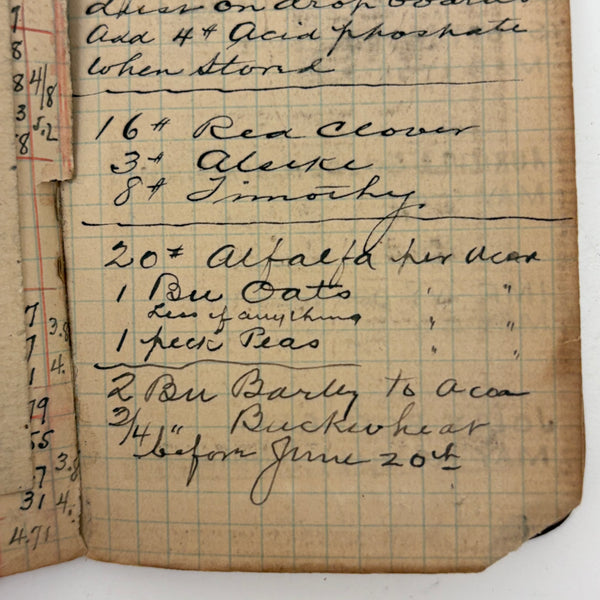 7
8
8 4/8
3
.8 5.2
7 3.8
7
1 4.
79
55
.7 3.8
31 4.
4.71
on drop boards
Add 4# Acid phosphate
when stored
16# Red Clover
3# Alsike
8# Timothy.
20# Alfalfa per acor
1 Bu Oats " "
Less if anything
1 peck Peas " "
2 Bu Barley to acor
3/4 " Buckwheat
before June 20th